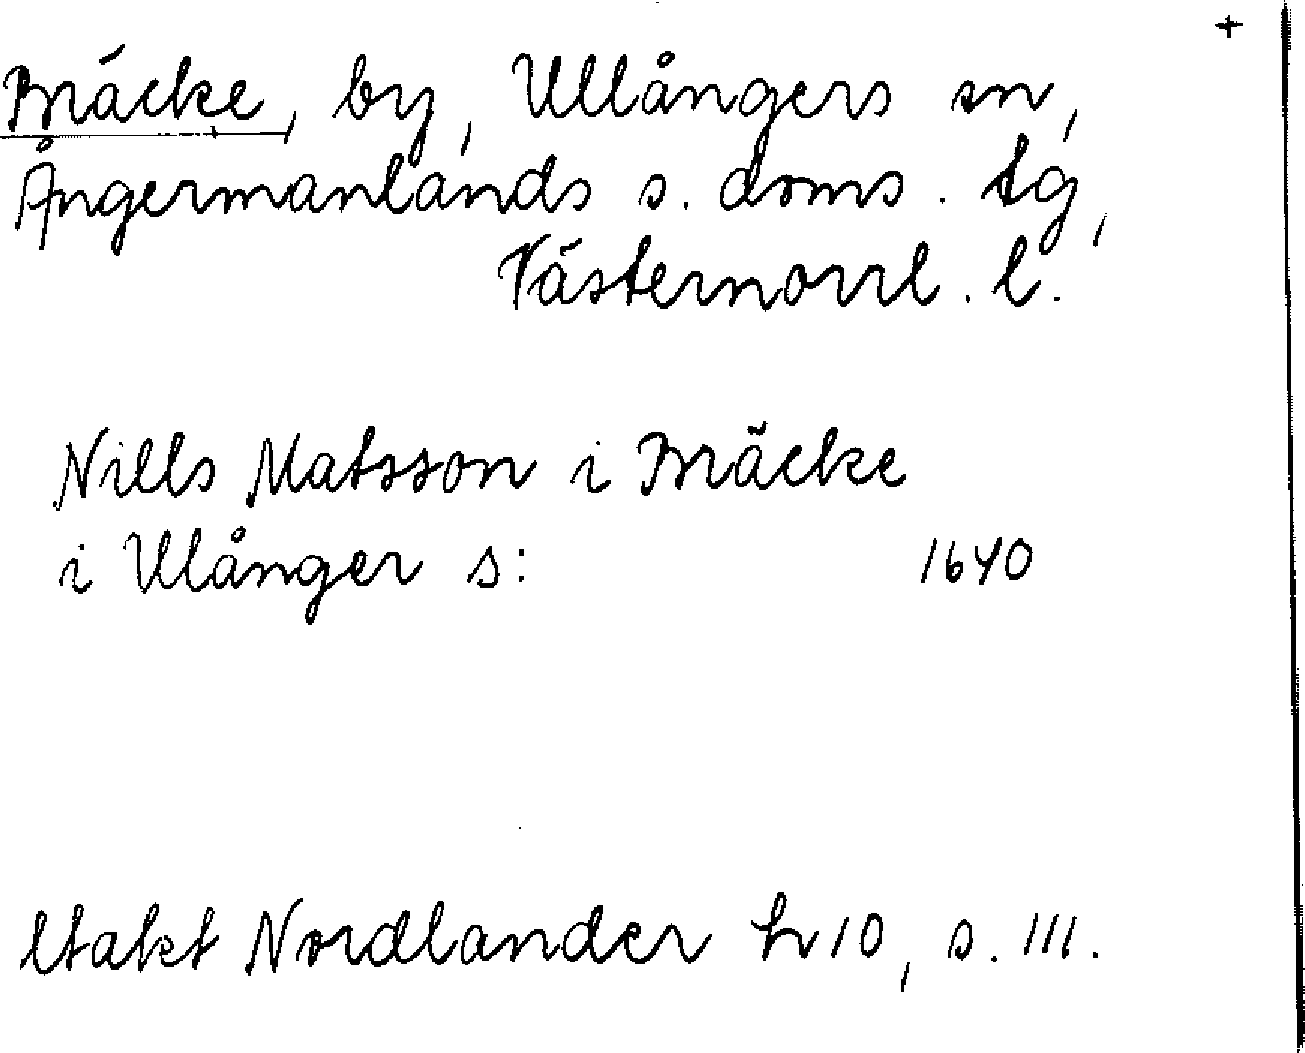 +
Bräcke, by, Ullångers sn,
Ångermanlands s. doms. tg,
Västernorrl. l.
Nills Matsson i Bräcke
i Ulånger s: 1640
Utakt Nordlander h 10, s. 111.